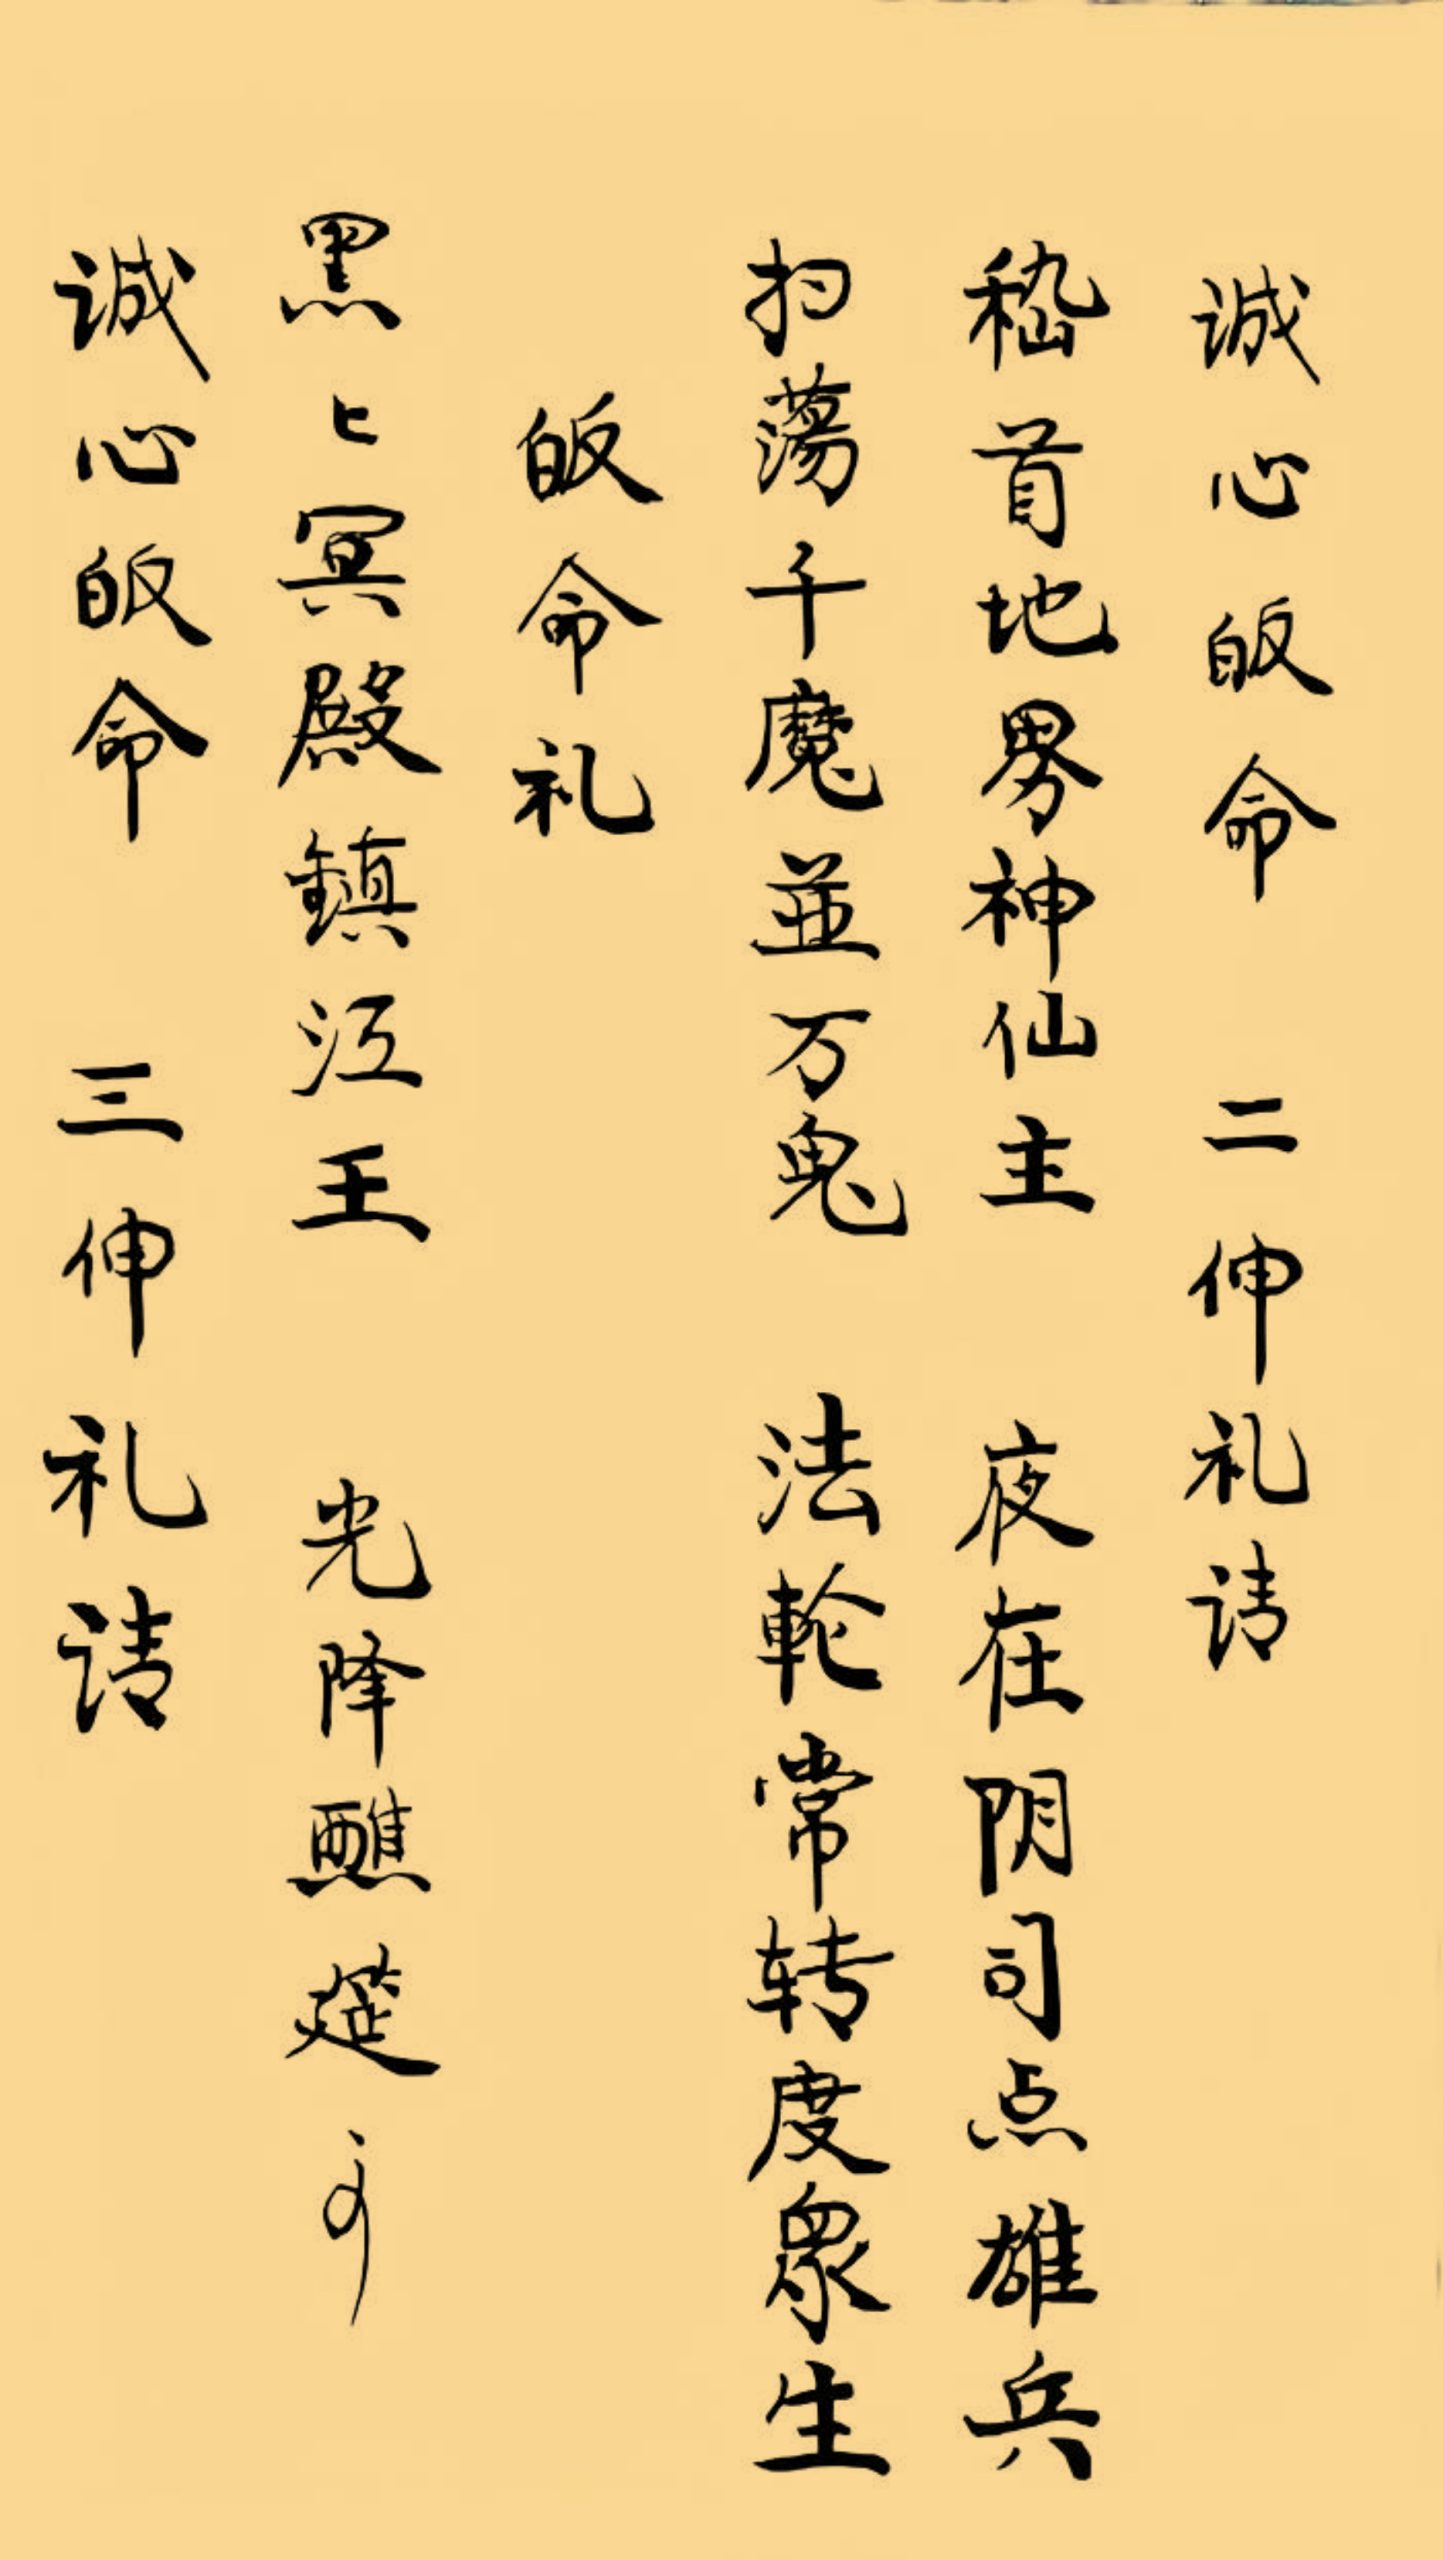 誠心皈命 二伸礼请
嵇首地界神仙主 夜在阴司点雄兵
扫蕩千魔並万鬼 法輪常转度眾生
皈命礼
黑〻冥殿鎮江王 光降醮筵
誠心皈命 三伸礼请